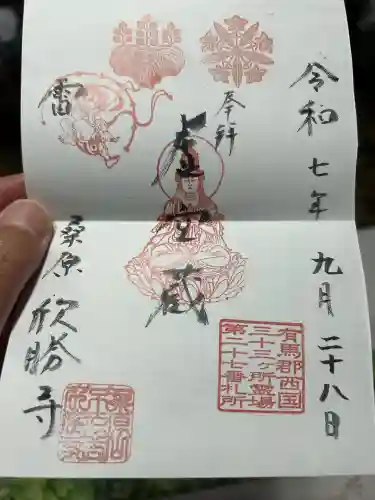 令和七年九月二十八日
奉拝
虚空蔵
雷
桑原欣勝寺
有馬郡西国
三十三ヶ所霊場
第二十七番札所